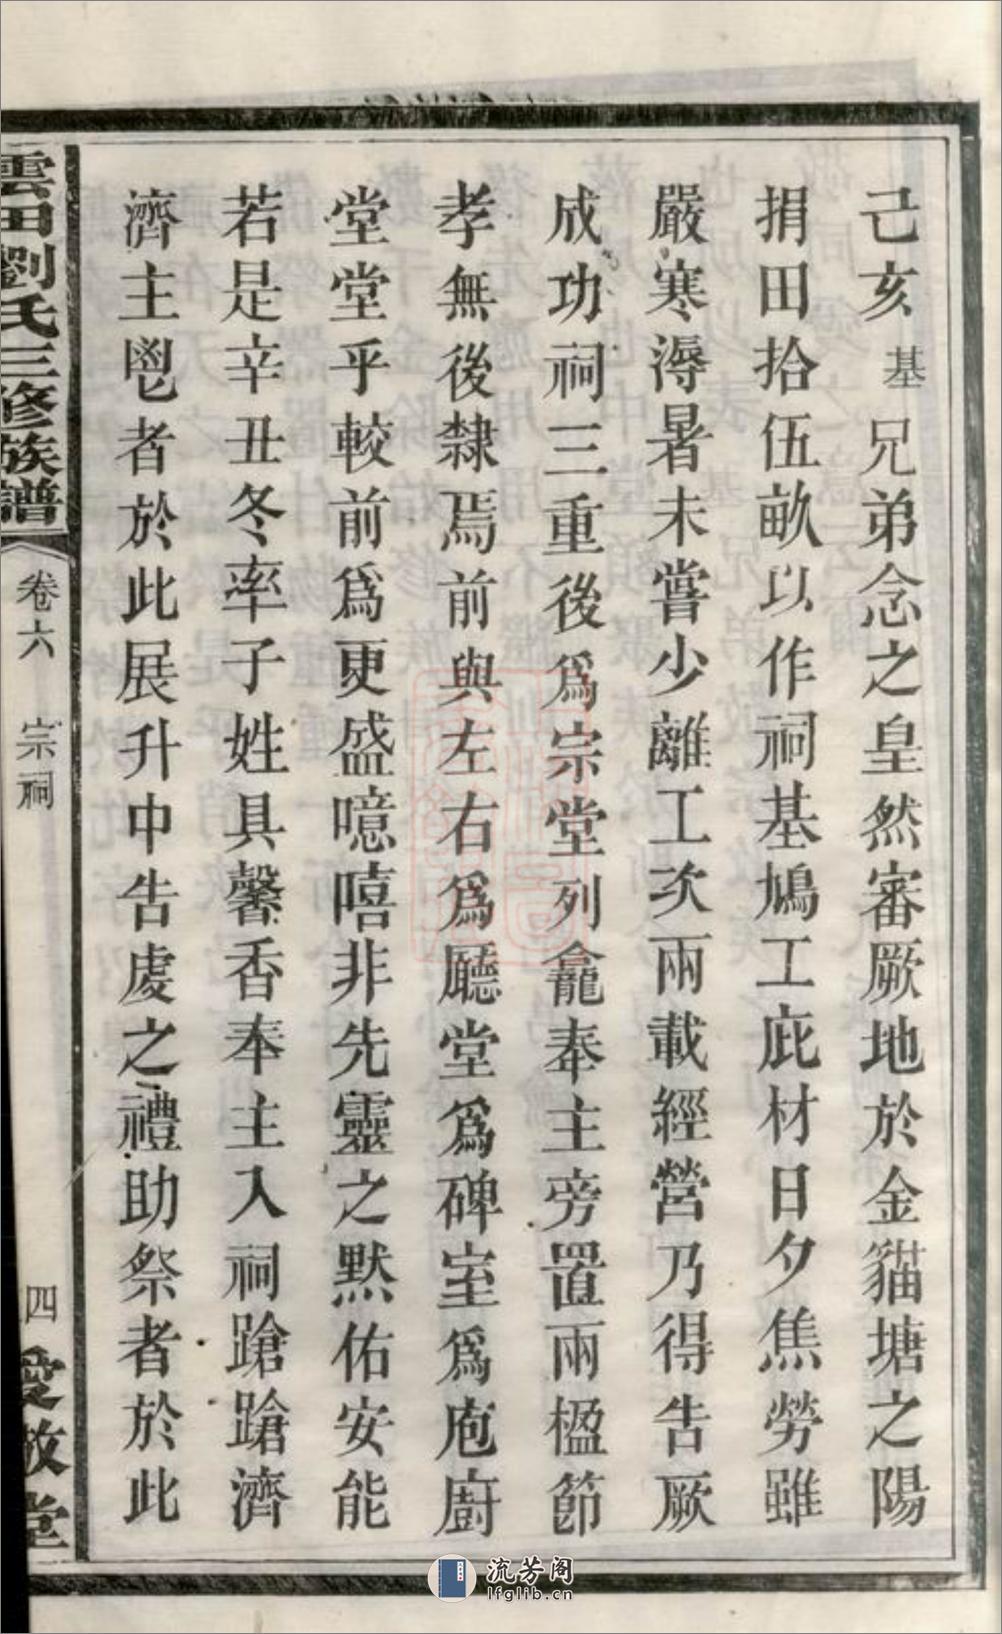 己亥基兄弟念之皇然審厥地於金貓塘之陽
捐田拾伍畝以作祠基鳩工庇材日夕焦勞雖
嚴寒溽暑未嘗少離工次兩載經營乃得告厥
成功祠三重後爲宗堂列龕奉主旁置兩楹節
孝無後隸焉前與左右爲廳堂爲碑室爲庖廚
堂堂乎較前爲更盛噫嘻非先靈之默佑安能
若是辛丑冬率子姓具馨香奉主入祠蹌蹌濟
濟主鬯者於此展升中告虔之禮助祭者於此
雲田劉氏三修族譜
卷六 宗祠
四 愛敬堂
流芳阁
lfglib.cn